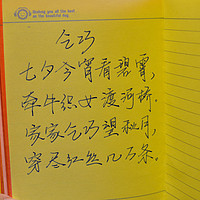 Bringing you all the best
on the beautiful day
乞巧
七夕今宵看碧霄,
牵牛织女渡河桥.
家家乞巧望秋月,
穿尽红丝几万条.